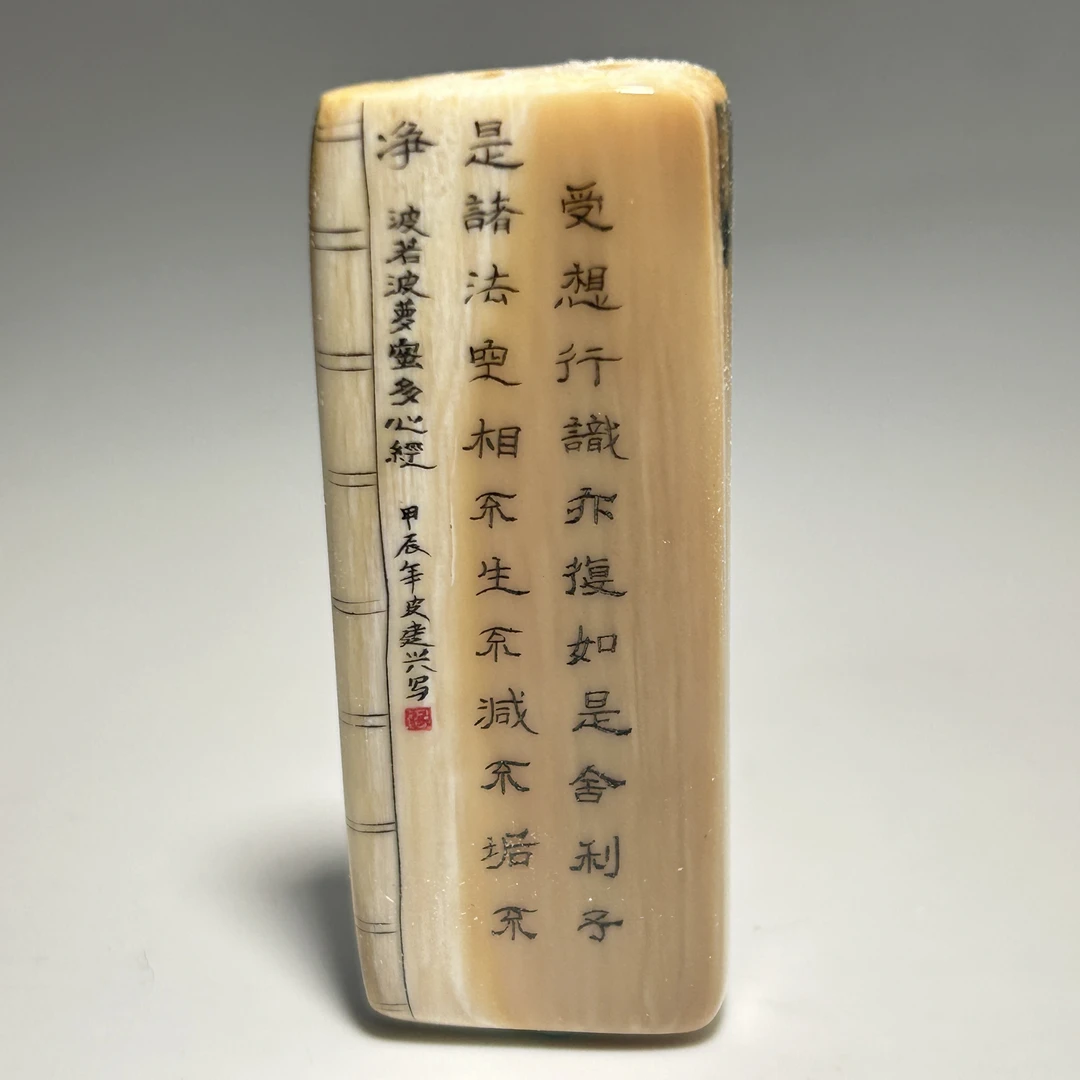 受想行識亦復如是舍利子
是諸法空相不生不減不垢不
净
波若波萝蜜多心經
甲辰年皮建兴写